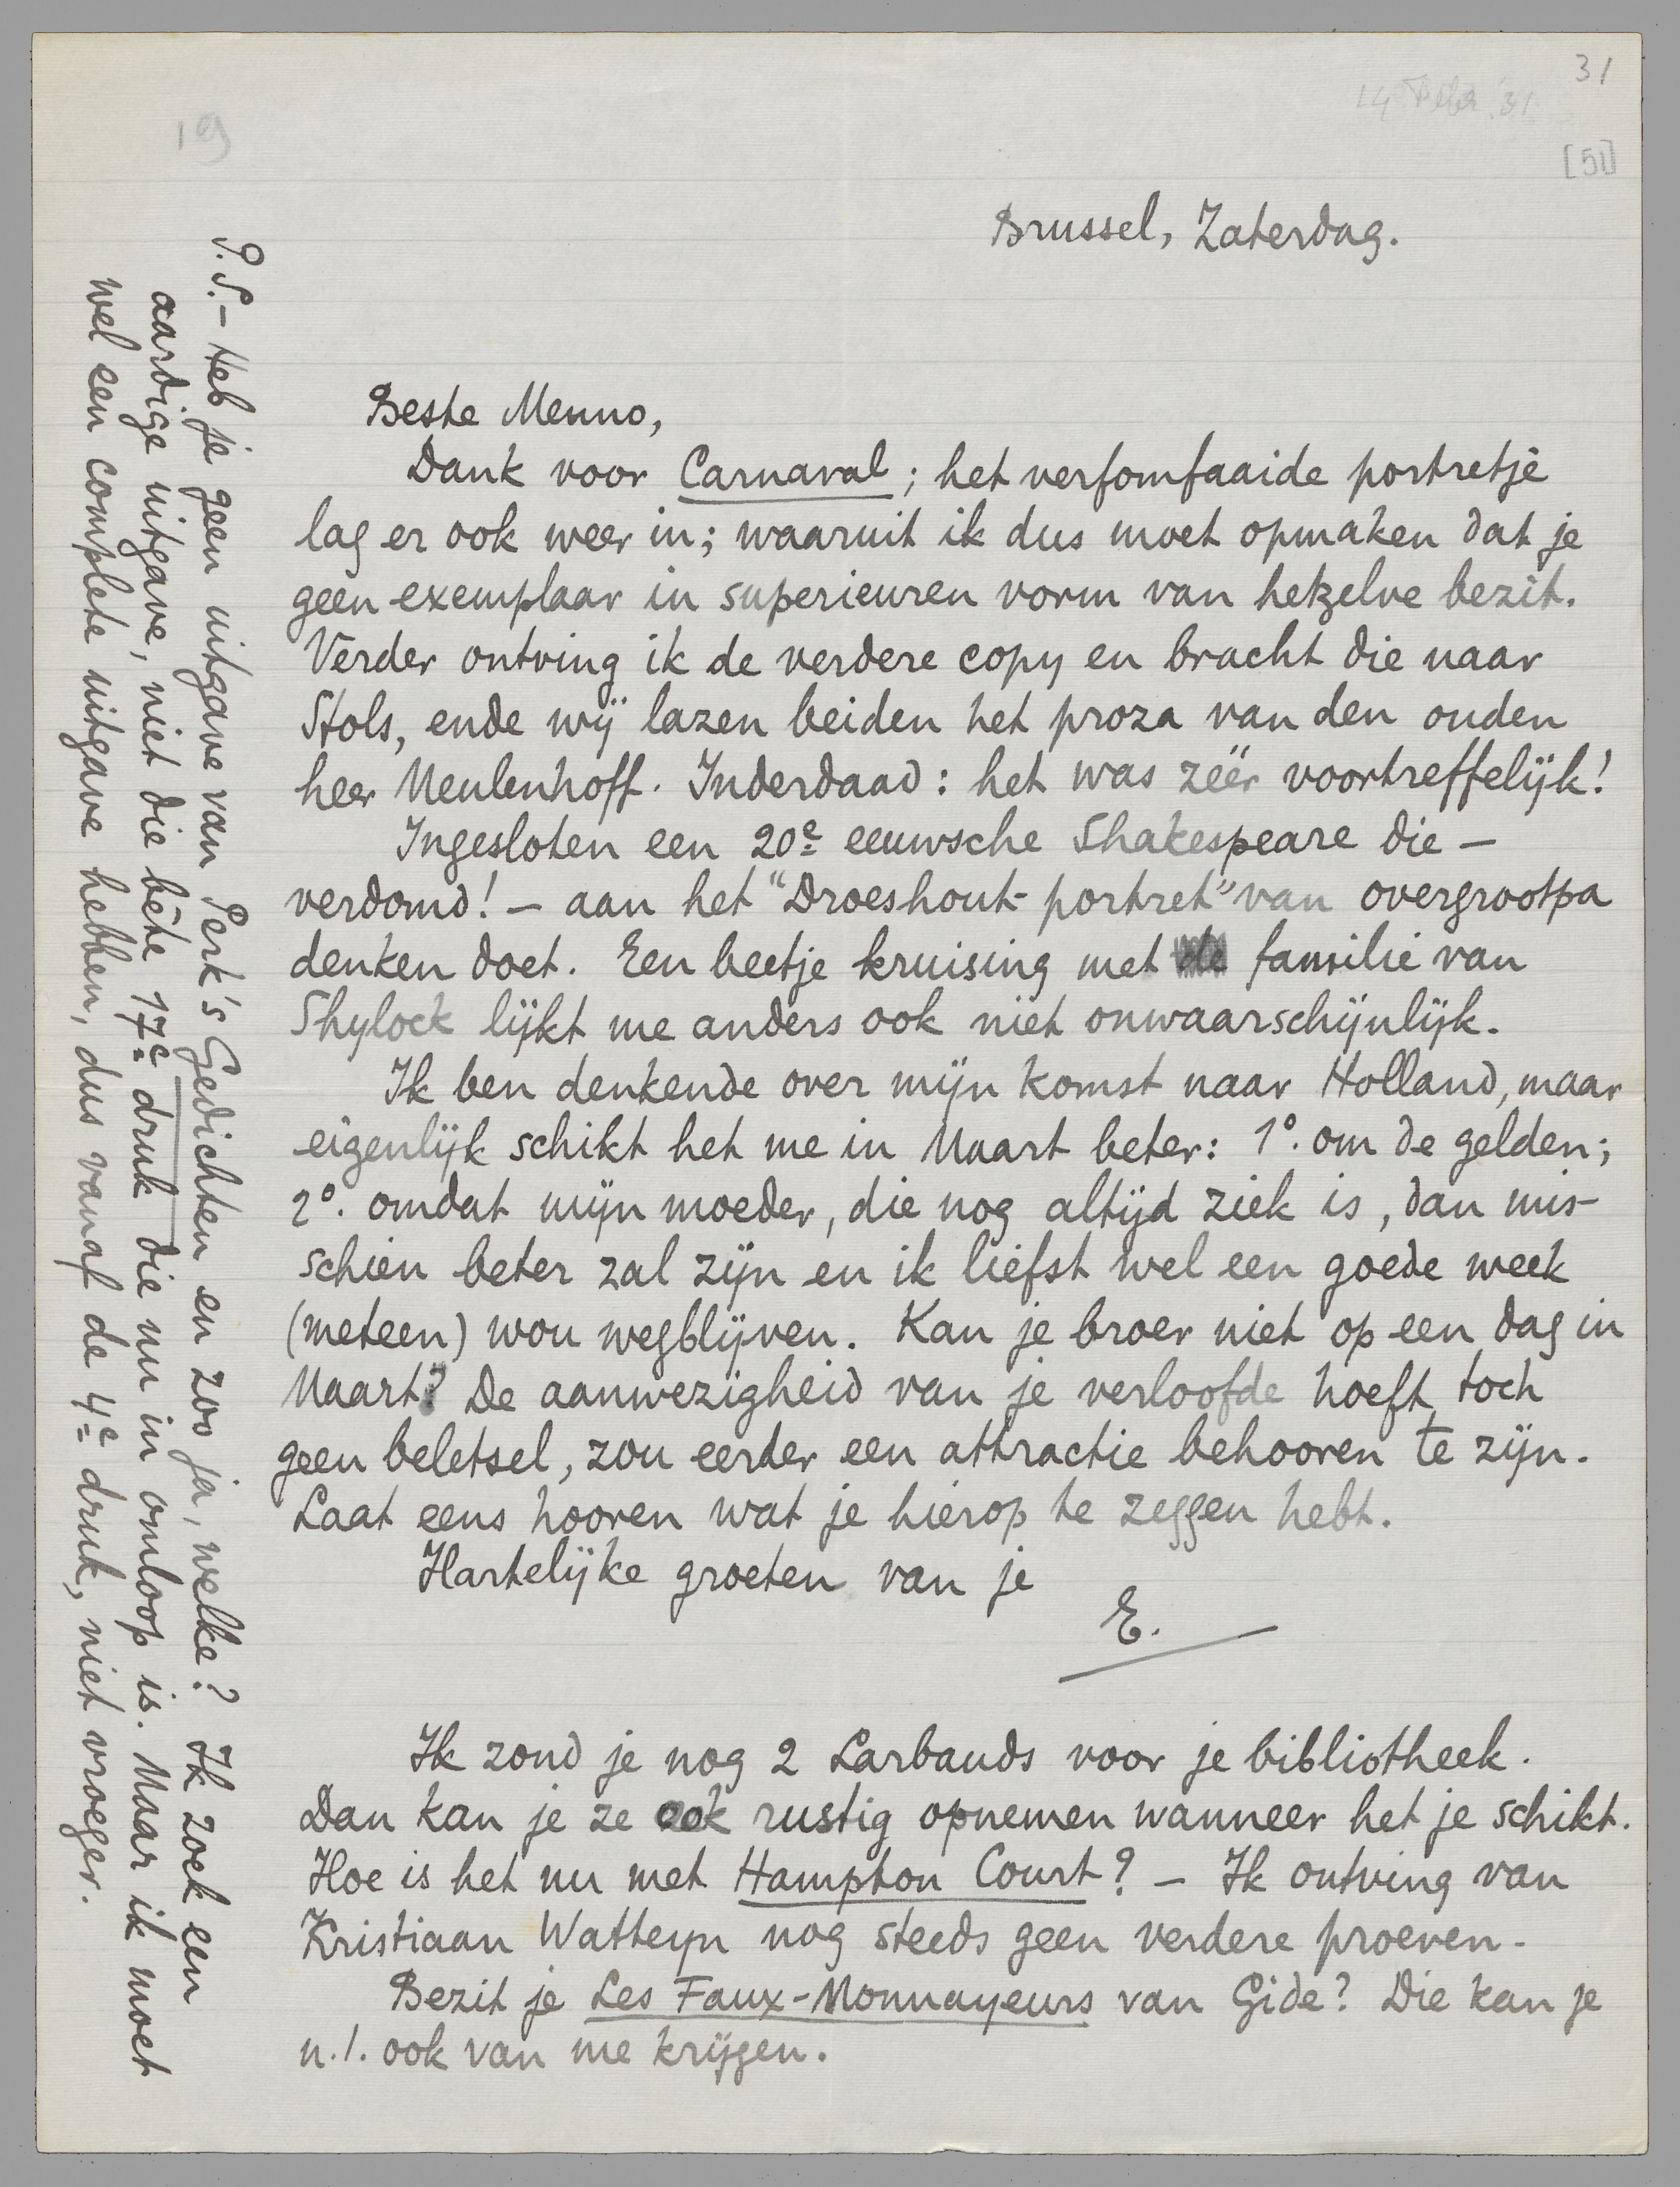 31
14 Febr. 31
19
[51]
Brussel, Zaterdag.
Beste Menno,
Dank voor Carnaval; het verfomfaaide portretje
lag er ook weer in; waaruit ik dus moet opmaken dat je
geen exemplaar in superieuren vorm van hetzelve bezit.
Verder ontving ik de verdere copy en bracht die naar
Stols, ende wij lazen beiden het proza van den ouden
heer Meulenhoff. Inderdaad: het was zéér voortreffelijk!
Ingesloten een 20e eeuwsche Shakespeare die –
verdomd! – aan het "Droeshout-portret" van overgrootpa
denken doet. Een beetje kruising met de familie van
Shylock lijkt me anders ook niet onwaarschijnlijk.
Ik ben denkende over mijn komst naar Holland, maar
eigenlijk schikt het me in Maart beter: 1°. om de gelden;
2°. omdat mijn moeder, die nog altijd ziek is, dan mis-
schien beter zal zijn en ik liefst wel een goede week
(meteen) wou wegblijven. Kan je broer niet op een dag in
Maart? De aanwezigheid van je verloofde hoeft toch
geen beletsel, zou eerder een attractie behooren te zijn.
Laat eens hooren wat je hierop te zeggen hebt.
Hartelijke groeten van je
E.
Ik zond je nog 2 Larbauds voor je bibliotheek.
Dan kan je ze ook rustig opnemen wanneer het je schikt.
Hoe is het nu met Hampton Court? – Ik ontving van
Kristiaan Watteyn nog steeds geen verdere proeven.
Bezit je Les Faux-Monnayeurs van Gide? Die kan je
n.l. ook van me krijgen.
P.S. – Heb je geen uitgave van Perk's Gedichten en zoo ja, welke? Ik zoek een
aardige uitgave, niet die bête 17e druk die nu in omloop is. Maar ik moet
wel een complete uitgave hebben, dus vanaf de 4e druk, niet vroeger.